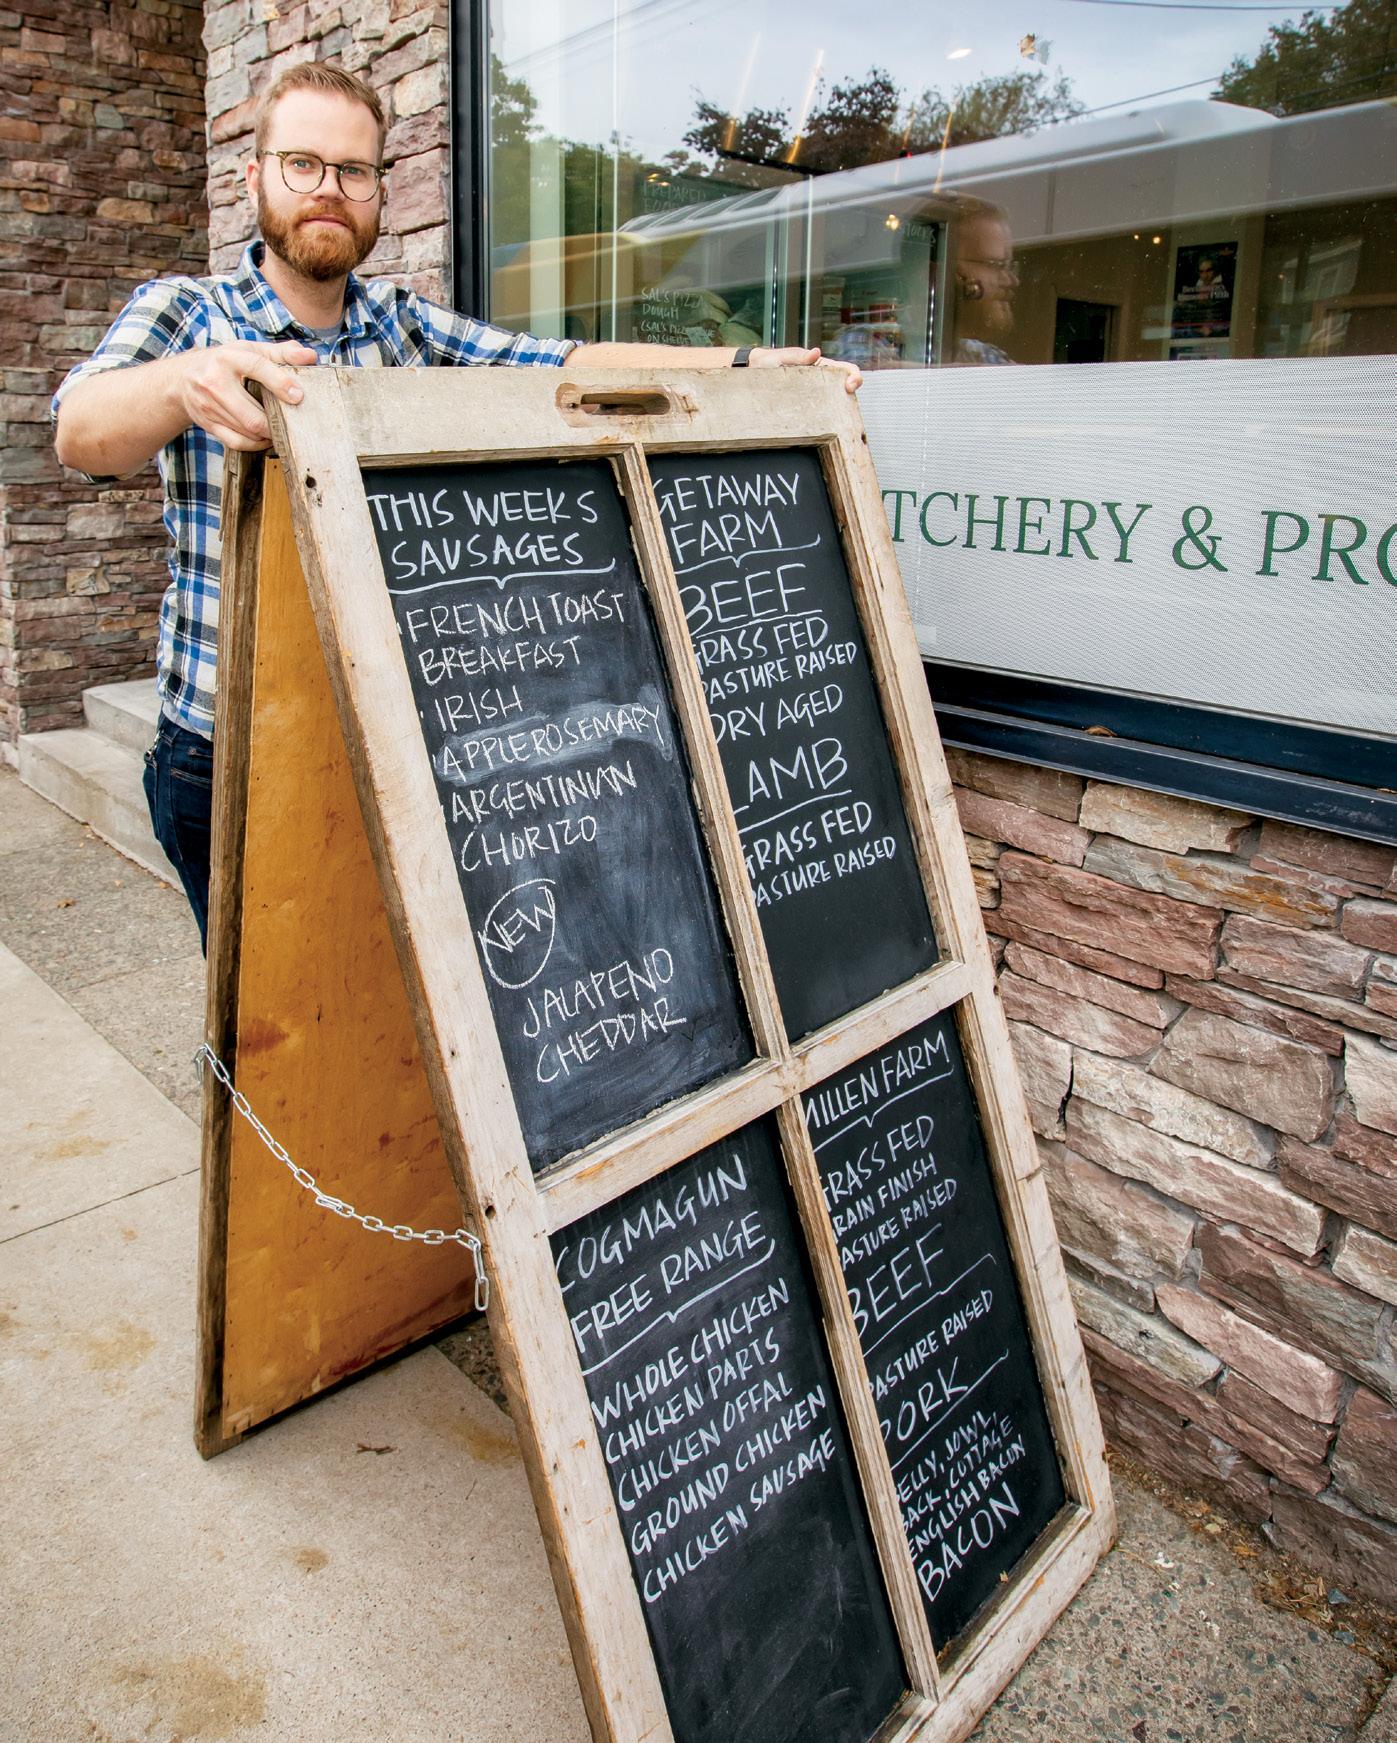 THIS WEEKS
SAUSAGES
FRENCH TOAST
BREAKFAST
IRISH
APPLE ROSEMARY
ARGENTINIAN
CHORIZO
NEW
JALAPENO
CHEDDAR
GETAWAY
FARM
BEEF
GRASS FED
PASTURE RAISED
DRY AGED
LAMB
GRASS FED
PASTURE RAISED
COGMAGUN
FREE RANGE
WHOLE CHICKEN
CHICKEN PARTS
CHICKEN OFFAL
GROUND CHICKEN
CHICKEN SAUSAGE
MILLEN FARM
GRASS FED
GRAIN FINISH
PASTURE RAISED
BEEF
PASTURE RAISED
PORK
BELLY, JOWL,
BACK, COTTAGE
ENGLISH BACON
BACON
TCHERY & PRO
PREPARED
FOODS
STOCKS
SAL'S PIZZA
DOUGH
ON SHELF